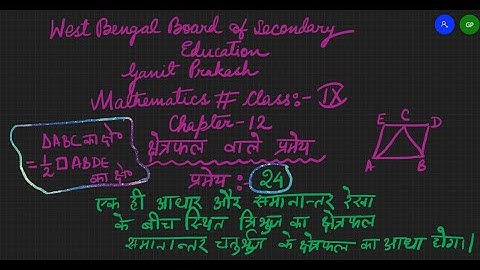 West Bengal Board of Secondary
Education
Ganit Prakash
Mathematics # Class:- IX
Chapter-12
क्षेत्रफल वाले प्रमेय
प्रमेय :- 24
ΔABC का क्षे०
= 1/2 □ ABDE
का क्षे०
E C D
A B
एक ही आधार और समानान्तर रेखा
के बीच स्थित त्रिभुज का क्षेत्रफल
समानान्तर चतुर्भुज के क्षेत्रफल का आधा होगा।
GP